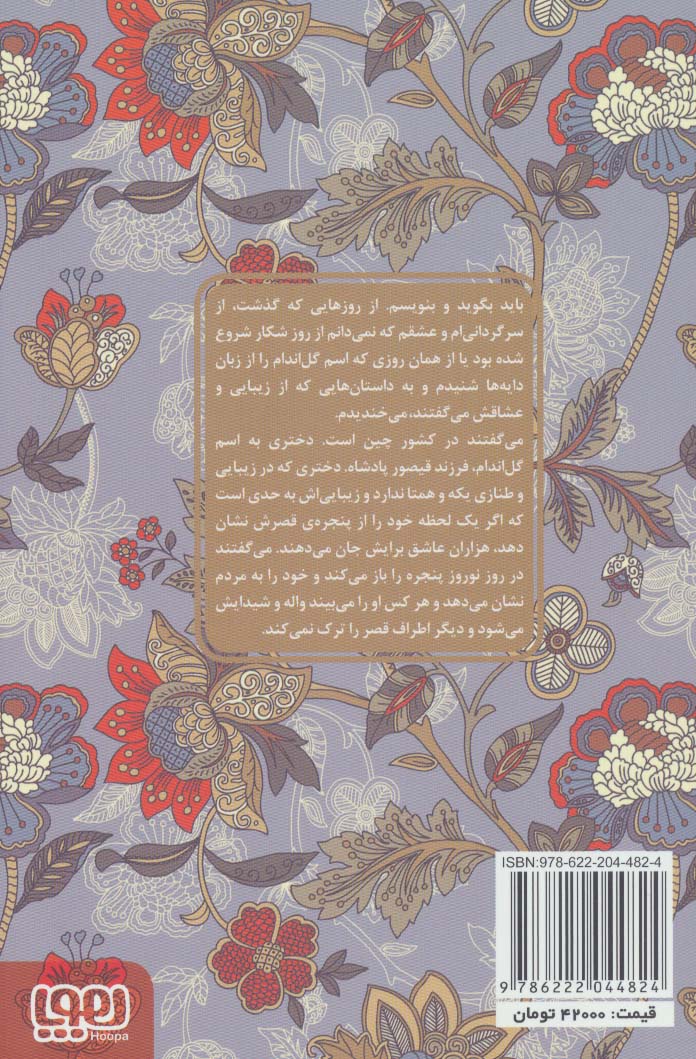 باید بگوید و بنویسم. از روزهایی که گذشت، از
سرگردانی‌ام و عشقم که نمی‌دانم از روز شکار شروع
شده بود یا از همان روزی که اسم گل‌اندام را از زبان
دایه‌ها شنیدم و به داستان‌هایی که از زیبایی و
عشاقش می‌گفتند، می‌خندیدم.
می‌گفتند در کشور چین است. دختری به اسم
گل‌اندام، فرزند قیصور پادشاه. دختری که در زیبایی
و طنازی یکه و همتا ندارد و زیبایی‌اش به حدی است
که اگر یک لحظه خود را از پنجره‌ی قصرش نشان
دهد، هزاران عاشق برایش جان می‌دهند. می‌گفتند
در روز نوروز پنجره را باز می‌کند و خود را به مردم
نشان می‌دهد و هر کس او را می‌بیند واله و شیدایش
می‌شود و دیگر اطراف قصر را ترک نمی‌کند.
ISBN:978-622-204-482-4
9 786222 044824
قیمت: ۴۲۰۰۰ تومان
هوپا
Hoopa